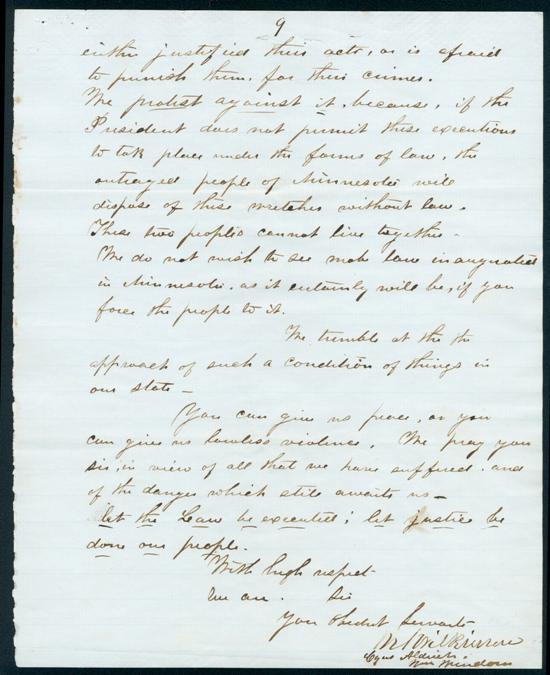 9
either justified their acts, or is afraid
to punish them, for their crimes.
We protest against it, because, if the
President does not permit these executions
to take place under the forms of law, the
outraged people of Minnesota will
dispose of these wretches without law.
These two peoples cannot live together.
We do not wish to see mob law inaugurated
in Minnesota, as it certainly will be, if you
force the people to it.
We tremble at the the
approach of such a condition of things in
our state —
You can give us peace, or you
can give us lawless violence. We pray you
sir, in view of all that we have suffered, and
of the danger which still awaits us —
let the Law be executed; let justice be
done our people.
With high respect
We are. Sir
Your Obedient Servants
M S Wilkinson
Cyrus Aldrich
Wm Windom